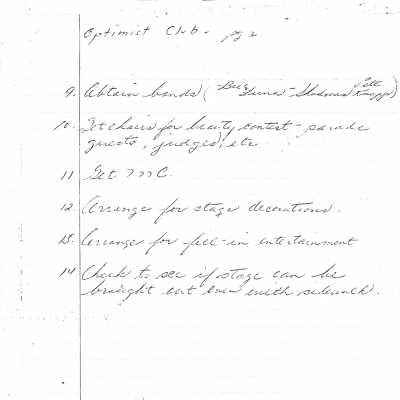 Optimist Club - pg 2
9. Obtain bands (
10. Get chairs for beauty contest - parade
guests, judges, etc
11 Get MC.
12 Arrange for stage decorations.
13. Arrange for fill-in entertainment
14 Check to see if stage can be
brought out even with sidewalk.